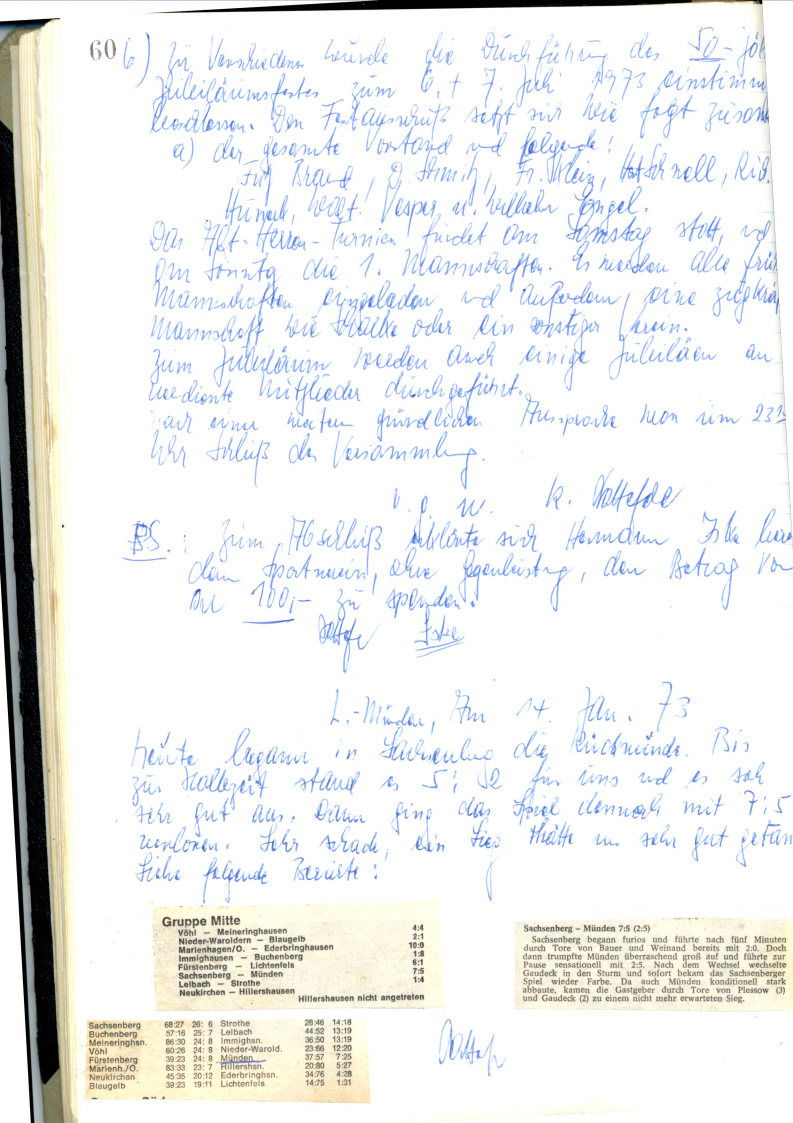 60 6) Zu Verschiedenes wurde die Durchführung des 50-jäh
Jubiläumsfestes zum 6. + 7. Juli 1973 einstimm
beschlossen. Der Festausschuß setzt sich wie folgt zusam
a) der gesamte Vorstand und folgende:
Fritz D. Schmidt, Fr. Klein, Schnell, Rich.
Vesper u. Wilhelm
Das Alt-Herren-Turnier findet am Samstag statt, und
am Sonntag die 1. Mannschaften. Es werden alle
Mannschaften eingeladen und außerdem, eine zugkräf
Mannschaft wie Schalke oder ein sonstiger Verein.
Zum Jubiläum werden auch einige Jubiläen an
verdiente Mitglieder durchgeführt.
Nach einer guten gründlichen Aussprache um 23
Uhr Schluß der Versammlung.
v. g. u. K.
PS.: Zum Abschluß erklärte sich Hermann Iske
dem Sportverein, ohne Gegenleistung, den Betrag von
DM 100,- zu spenden.
Iske
L.-Münden, Am 14. Jan. 73
Heute begann in Sachsenberg die Rückrunde. Bis
zur Halbzeit stand es 5:2 für uns und es sah
sehr gut aus. Dann ging das Spiel dennoch mit 7:5
verloren. Sehr schade, ein Sieg hätte uns sehr gut getan
Siehe folgende Berichte:
Gruppe Mitte
Vöhl — Meineringhausen 4:4
Nieder-Waroldern — Blaugelb 2:1
Marienhagen/O. — Ederbringhausen 10:0
Immighausen — Buchenberg 1:8
Fürstenberg — Lichtenfels 6:1
Sachsenberg — Münden 7:5
Lelbach — Strothe 1:4
Neukirchen — Hillershausen
Hillershausen nicht angetreten
Sachsenberg – Münden 7:5 (2:5)
Sachsenberg begann furios und führte nach fünf Minuten
durch Tore von Bauer und Weinand bereits mit 2:0. Doch
dann trumpfte Münden überraschend groß auf und führte zur
Pause sensationell mit 2:5. Nach dem Wechsel wechselte
Gaudeck in den Sturm und sofort bekam das Sachsenberger
Spiel wieder Farbe. Da auch Münden konditionell stark
abbaute, kamen die Gastgeber durch Tore von Plessow (3)
und Gaudeck (2) zu einem nicht mehr erwarteten Sieg.
Sachsenberg 68:27 26: 6 Strothe 28:46 14:18
Buchenberg 57:16 25: 7 Lelbach 44:52 13:19
Meineringhsn. 86:30 24: 8 Immighsn. 36:50 13:19
Vöhl 60:26 24: 8 Nieder-Warold. 23:66 12:20
Fürstenberg 39:23 24: 8 Münden 37:57 7:25
Marienh./O. 83:33 23: 7 Hillershsn. 20:80 5:27
Neukirchen 45:35 20:12 Ederbringhsn. 34:76 4:28
Blaugelb 39:23 19:11 Lichtenfels 14:75 1:31